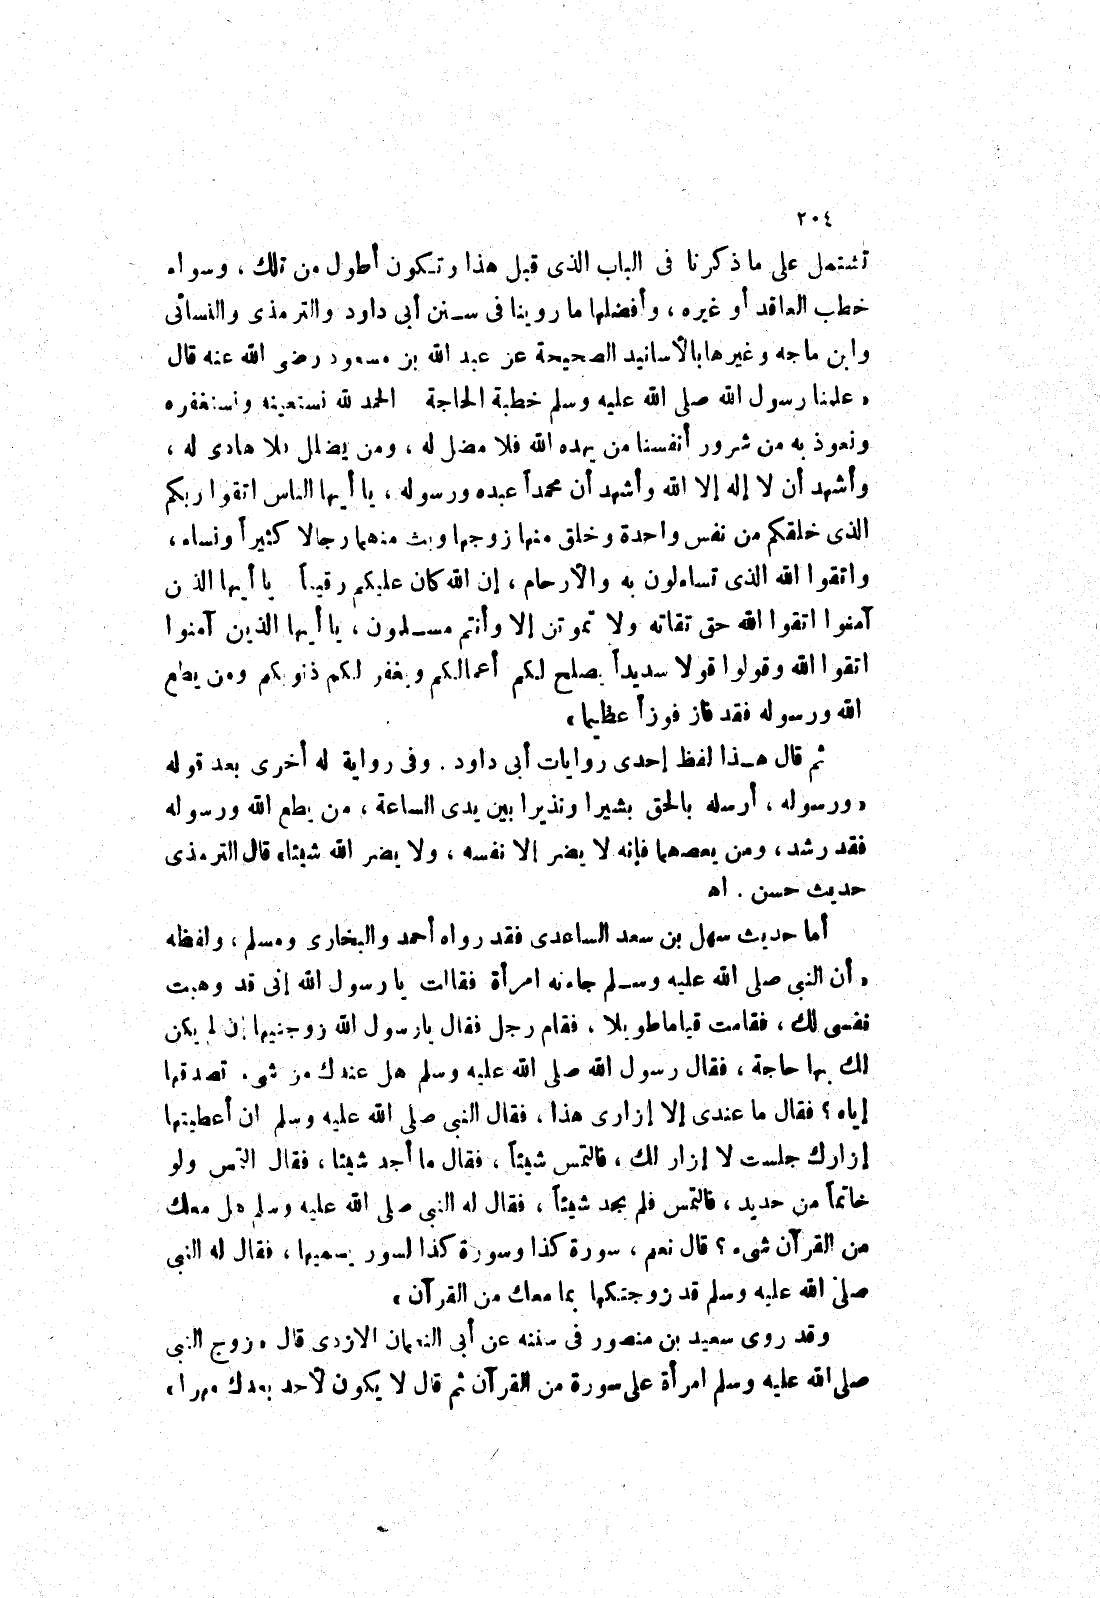 ٢٠٤
تشتمل على ما ذكرنا فى الباب الذى قبل هذا وتكون أطول من تلك ، وسواء
خطب العاقد أو غيره ، وأفضلها ما روينا فى سنن أبى داود والترمذى والنسائى
وابن ماجه وغيرها بالأسانيد الصحيحة عن عبد الله بن مسعود رضى الله عنه قال
« علمنا رسول الله صلى الله عليه وسلم خطبة الحاجة الحمد لله نستعينه ونستغفره
ونعوذ به من شرور أنفسنا من يهده الله فلا مضل له ، ومن يضلل فلا هادى له ،
وأشهد أن لا إله إلا الله وأشهد أن محمداً عبده ورسوله ، يا أيها الناس اتقوا ربكم
الذى خلقكم من نفس واحدة وخلق منها زوجها وبث منهما رجالا كثيراً ونساء ،
واتقوا الله الذى تساءلون به والأرحام ، إن الله كان عليكم رقيباً يا أيها الذين
آمنوا اتقوا الله حق تقاته ولا تموتن إلا وأنتم مسلمون ، يا أيها الذين آمنوا
اتقوا الله وقولوا قولا سديداً يصلح لكم أعمالكم ويغفر لكم ذنوبكم ومن يطع
الله ورسوله فقد فاز فوزاً عظيما »
ثم قال هذا لفظ إحدى روايات أبى داود . وفى رواية له أخرى بعد قوله
« ورسوله ، أرسله بالحق بشيرا ونذيرا بين يدى الساعة ، من يطع الله ورسوله
فقد رشد ، ومن يعصهما فإنه لا يضر إلا نفسه ، ولا يضر الله شيئا » قال الترمذى
حديث حسن . اه
أما حديث سهل بن سعد الساعدى فقد رواه أحمد والبخارى ومسلم ، ولفظه
« أن النبى صلى الله عليه وسلم جاءته امرأة فقالت يا رسول الله إنى قد وهبت
نفسى لك ، فقامت قياما طويلا ، فقام رجل فقال يارسول الله زوجنيها إن لم يكن
لك بها حاجة ، فقال رسول الله صلى الله عليه وسلم هل عندك من شىء تصدقها
إياه ؟ فقال ما عندى إلا إزارى هذا ، فقال النبى صلى الله عليه وسلم ان أعطيتها
إزارك جلست لا إزار لك ، فالتمس شيئاً ، فقال ما أجد شيئا ، فقال التمس ولو
خاتماً من حديد ، فالتمس فلم يجد شيئاً ، فقال له النبى صلى الله عليه وسلم هل معك
من القرآن شىء ؟ قال نعم ، سورة كذا وسورة كذا لسور يسميها ، فقال له النبى
صلى الله عليه وسلم قد زوجتكها بما معك من القرآن »
وقد روى سعيد بن منصور فى سننه عن أبى النعمان الازدى قال « زوج النبى
صلى الله عليه وسلم امرأة على سورة من القرآن ثم قال لا يكون لأحد بعدك مهرا »